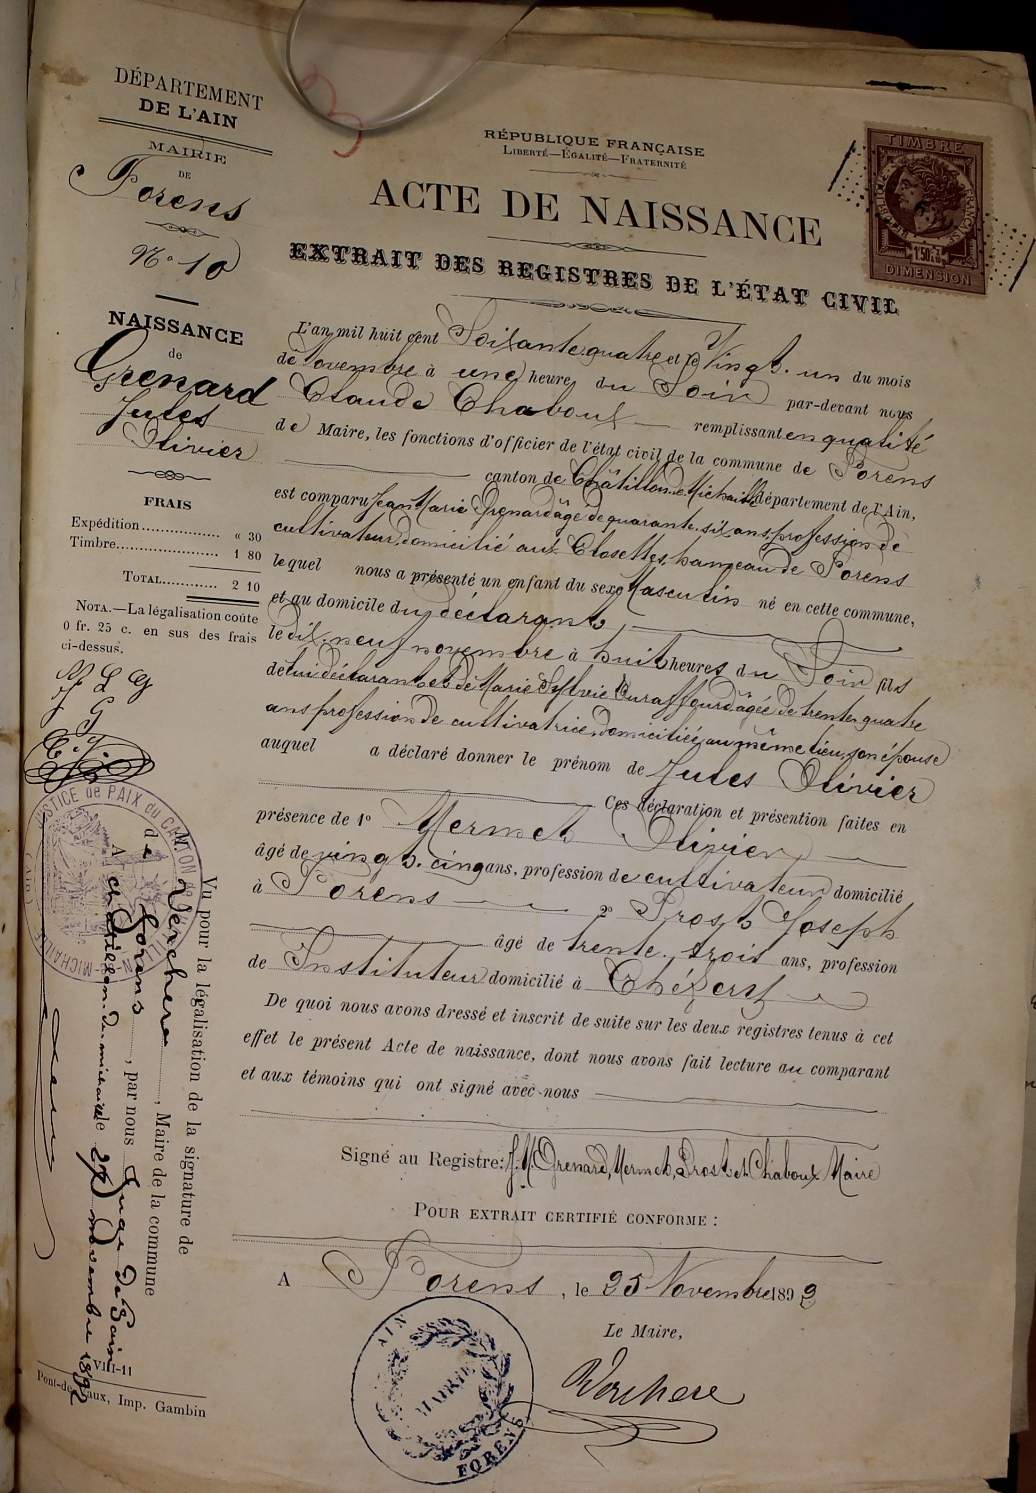 DÉPARTEMENT
DE L'AIN
MAIRIE
DE
Forens
N° 10
NAISSANCE
de
Grenard
Jules
Olivier
FRAIS
Expédition............... « 30
Timbre.................... 1 80
TOTAL............ 2 10
NOTA.—La légalisation coûte
0 fr. 25 c. en sus des frais
ci-dessus.
RÉPUBLIQUE FRANÇAISE
LIBERTÉ—ÉGALITÉ—FRATERNITÉ
ACTE DE NAISSANCE
EXTRAIT DES REGISTRES DE L'ÉTAT CIVIL
TIMBRE
RÉPUBLIQUE FRANÇAISE
1f50
DIMENSION
L'an mil huit cent Soixante quatre et le Vingt-un du mois
de Novembre à une heure du Soir par-devant nous
Claude Chaboux remplissant en qualité
de Maire, les fonctions d'officier de l'état civil de la commune de Forens
canton de Châtillon de Michaille département de l'Ain,
est comparu Jean Marie Grenard âgé de quarante-six ans, profession de
cultivateur, domicilié aux Closettes, hameau de Forens
lequel nous a présenté un enfant du sexe Masculin né en cette commune,
et au domicile du déclarant,
le dix-neuf novembre à huit heures du Soir fils
de lui déclarant et de Marie Sylvie Buraffourd âgée de trente-quatre
ans profession de cultivatrice, domiciliée au même lieu, son épouse
auquel a déclaré donner le prénom de Jules Olivier
Ces déclaration et présention faites en
présence de 1° Mermet Olivier
âgé de vingt-cinq ans, profession de cultivateur domicilié
à Forens 2° Prost Joseph
âgé de trente-trois ans, profession
de Instituteur domicilié à Chézery
De quoi nous avons dressé et inscrit de suite sur les deux registres tenus à cet
effet le présent Acte de naissance, dont nous avons fait lecture au comparant
et aux témoins qui ont signé avec nous
Signé au Registre: J. M. Grenard, Mermet, Prost et Chaboux Maire
POUR EXTRAIT CERTIFIÉ CONFORME :
A Forens, le 25 Novembre 1892
Le Maire,
Verchere
AIN
MAIRIE
FORENS
JUSTICE de PAIX du CANTON de
CHATILLON-de-MICHAILLE
(AIN)
Vu pour la légalisation de la signature de
M. Verchere, Maire de la commune
de Forens, par nous Juge de Paix
A Chatillon-de-michaille le 27 Novembre 1892
VIII-11
Pont-de-Vaux, Imp. Gambin